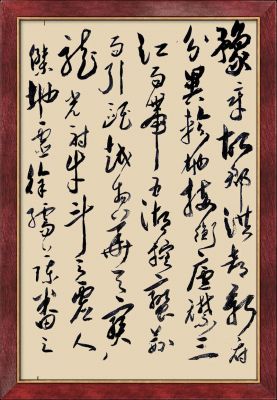 豫章故郡洪都新府
分翼軫地接衡廬襟三
江而帶五湖控蠻荊
而引甌越物華天寶
龍光射牛斗之墟人
傑地靈徐孺下陳蕃之